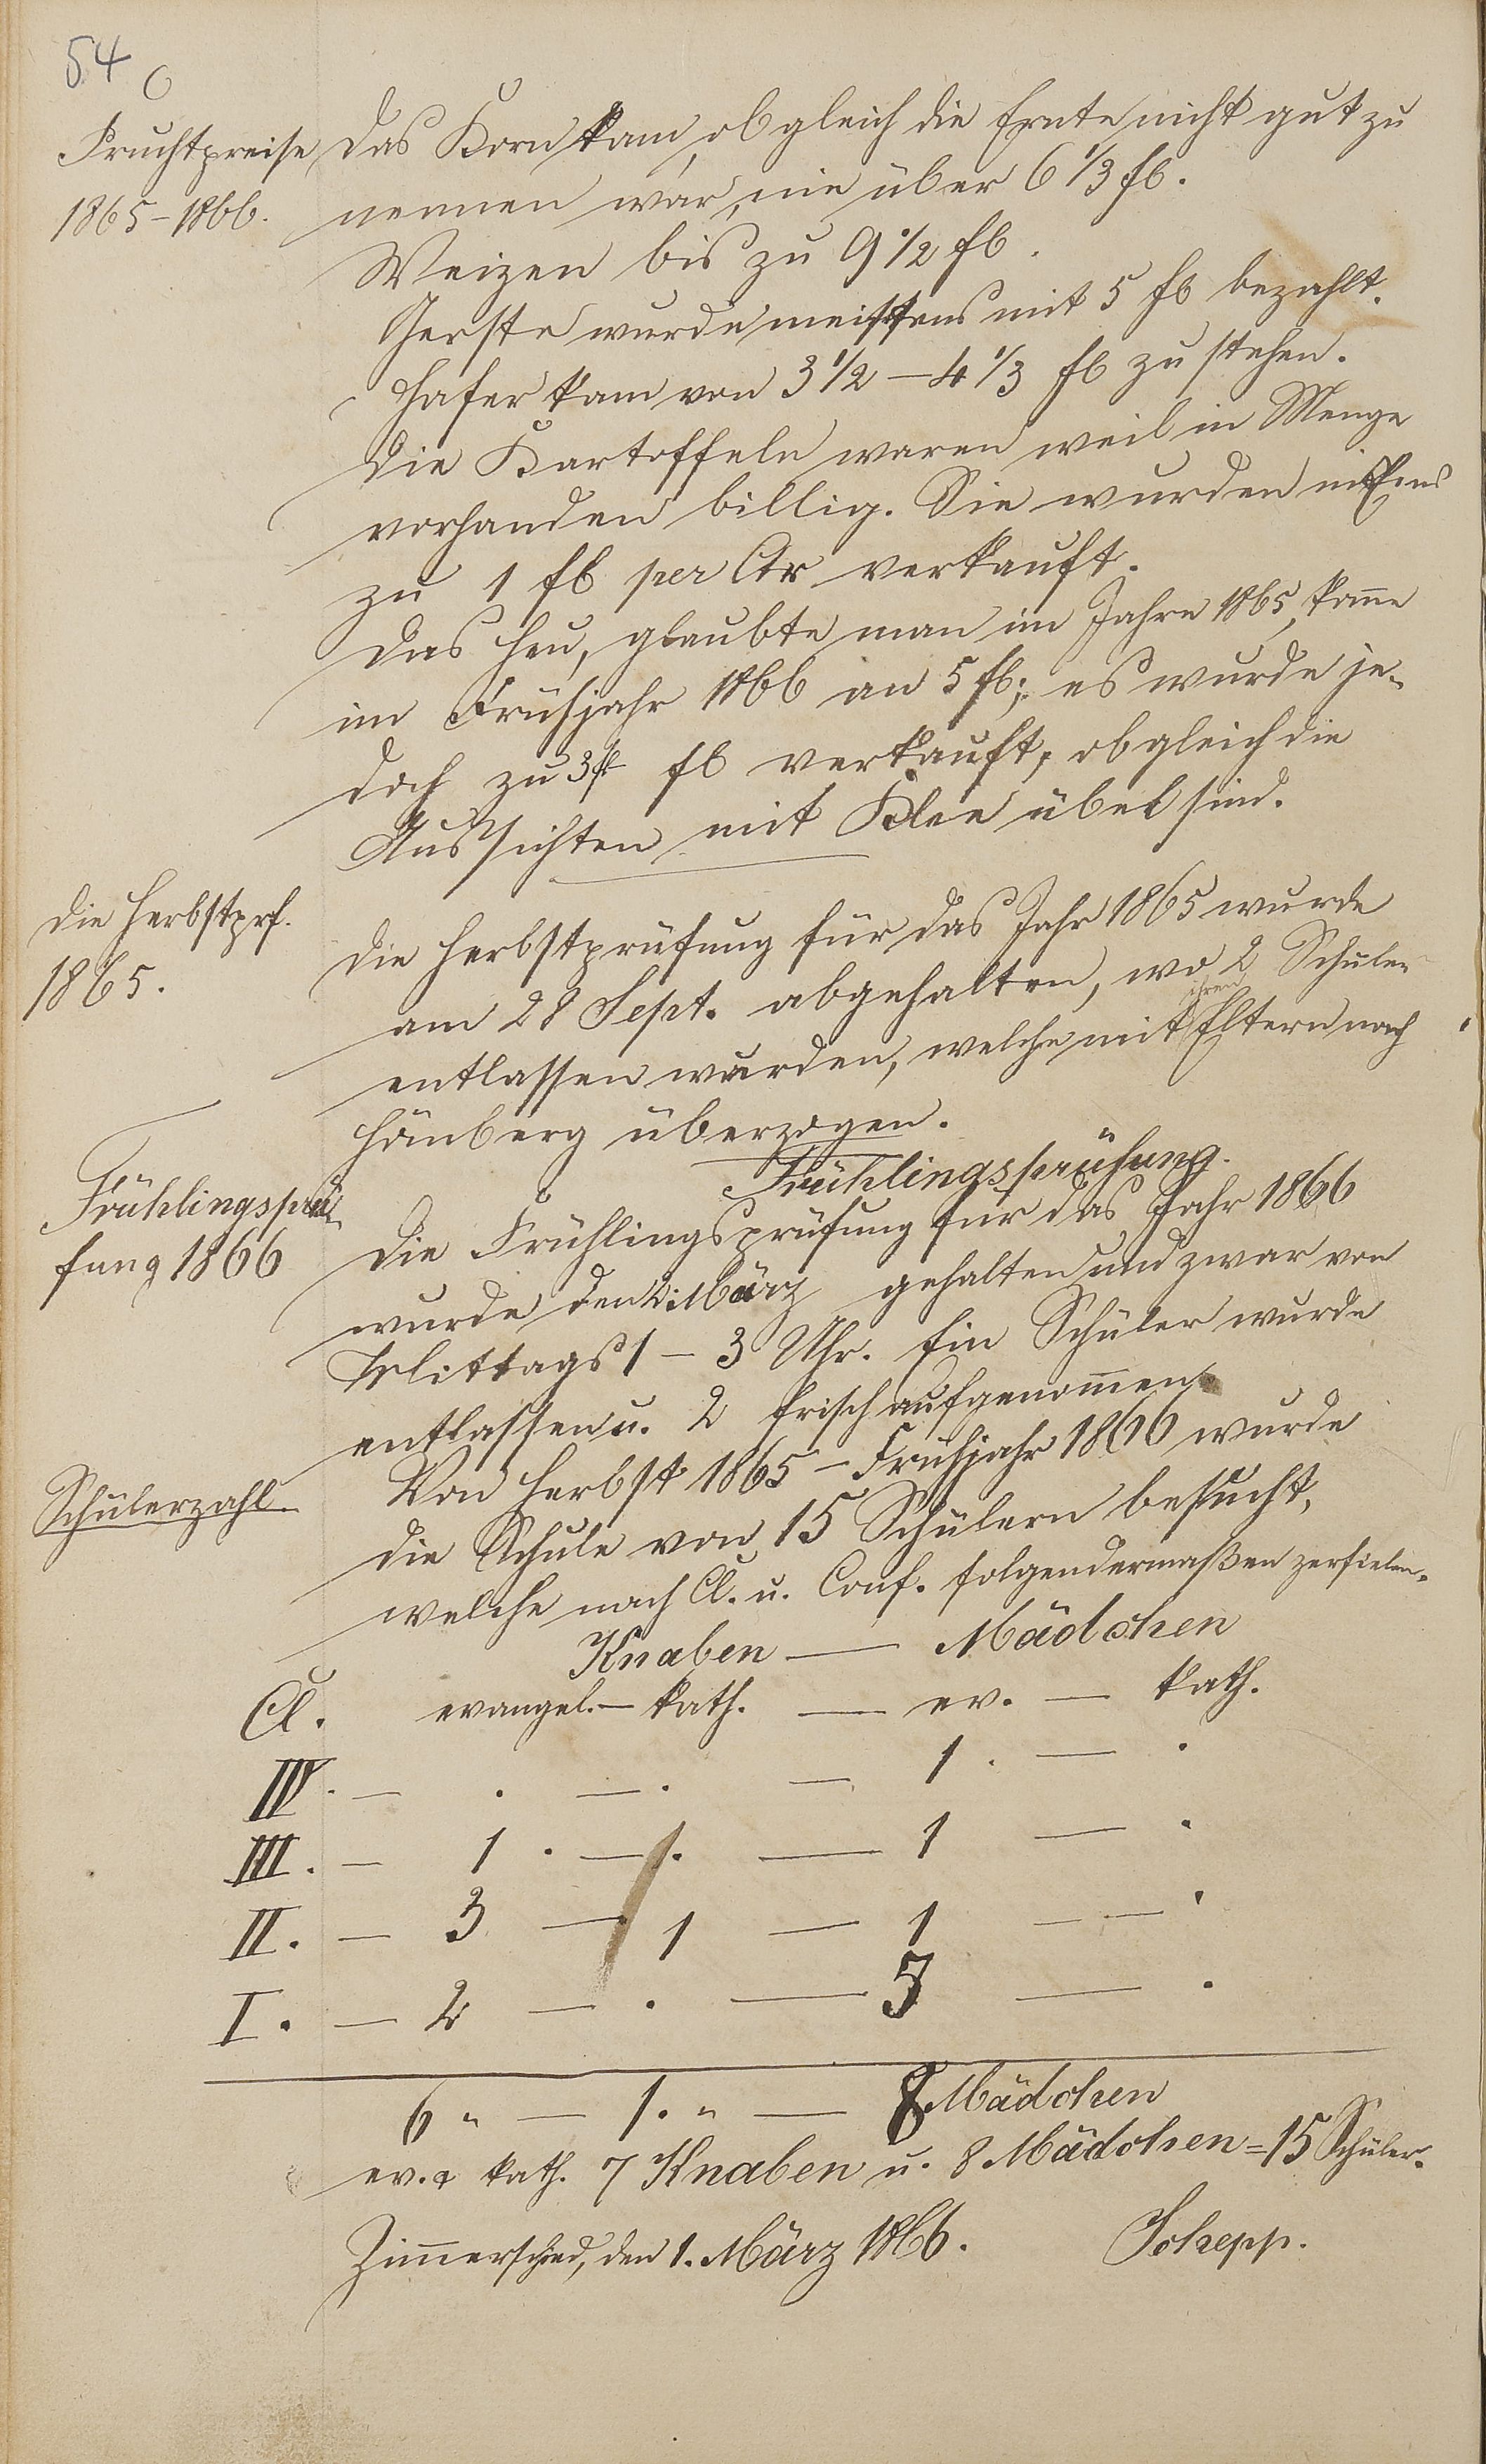 54
Fruchtpreise
1865-1866.
Das Korn kam, obgleich die Ernte nicht gut zu
nennen war, nie über 6 1/3 fl.
Weizen bis zu 9 1/2 fl.
Gerste wurde meistens mit 5 fl bezahlt.
Hafer kam von 3 1/2 – 4 1/3 fl zu stehen.
Die Kartoffeln waren weil in Menge
vorhanden billig. Sie wurden
zu 1 fl per Ctr verkauft.
Das Heu, glaubte man im Jahre 1865, kome
im Frühjahr 1866 an 5 fl; es wurde je-
doch zu 3 fl verkauft, obgleich die
Aussichten mit Klee übel sind.
Die Herbstprf.
1865.
Die Herbstprüfung für das Jahr 1865 wurde
am 28 Sept. abgehalten, wo 2 Schüler
entlassen wurden, welche mit ihren Eltern nach
Hömberg überzogen.
Frühlingsprüfung.
Frühlingsprü-
fung 1866
Die Frühlingsprüfung für das Jahr 1866
wurde den 2. März gehalten und zwar von
Mittags 1 – 3 Uhr. Ein Schüler wurde
entlassen u. 2 frisch aufgenomen.
Schülerzahl.
Von Herbst 1865 – Frühjahr 1866 wurde
die Schule von 15 Schülern besucht,
welche nach Cl. u. Conf. folgendermaßen zerfielen.
Knaben — Mädchen
Cl. evangel. – kath. — ev. — kath.
IV. — . — . — 1. — .
III. — 1. — 1. — 1 — .
II. — 3 — 1 — 1 — .
I. — 2 — . — 5 — .
6 " — 1. " — 8 Mädchen
ev. & kath. 7 Knaben u. 8 Mädchen = 15 Schüler.
Zimmerschied, den 1. März 1866. Schepp.